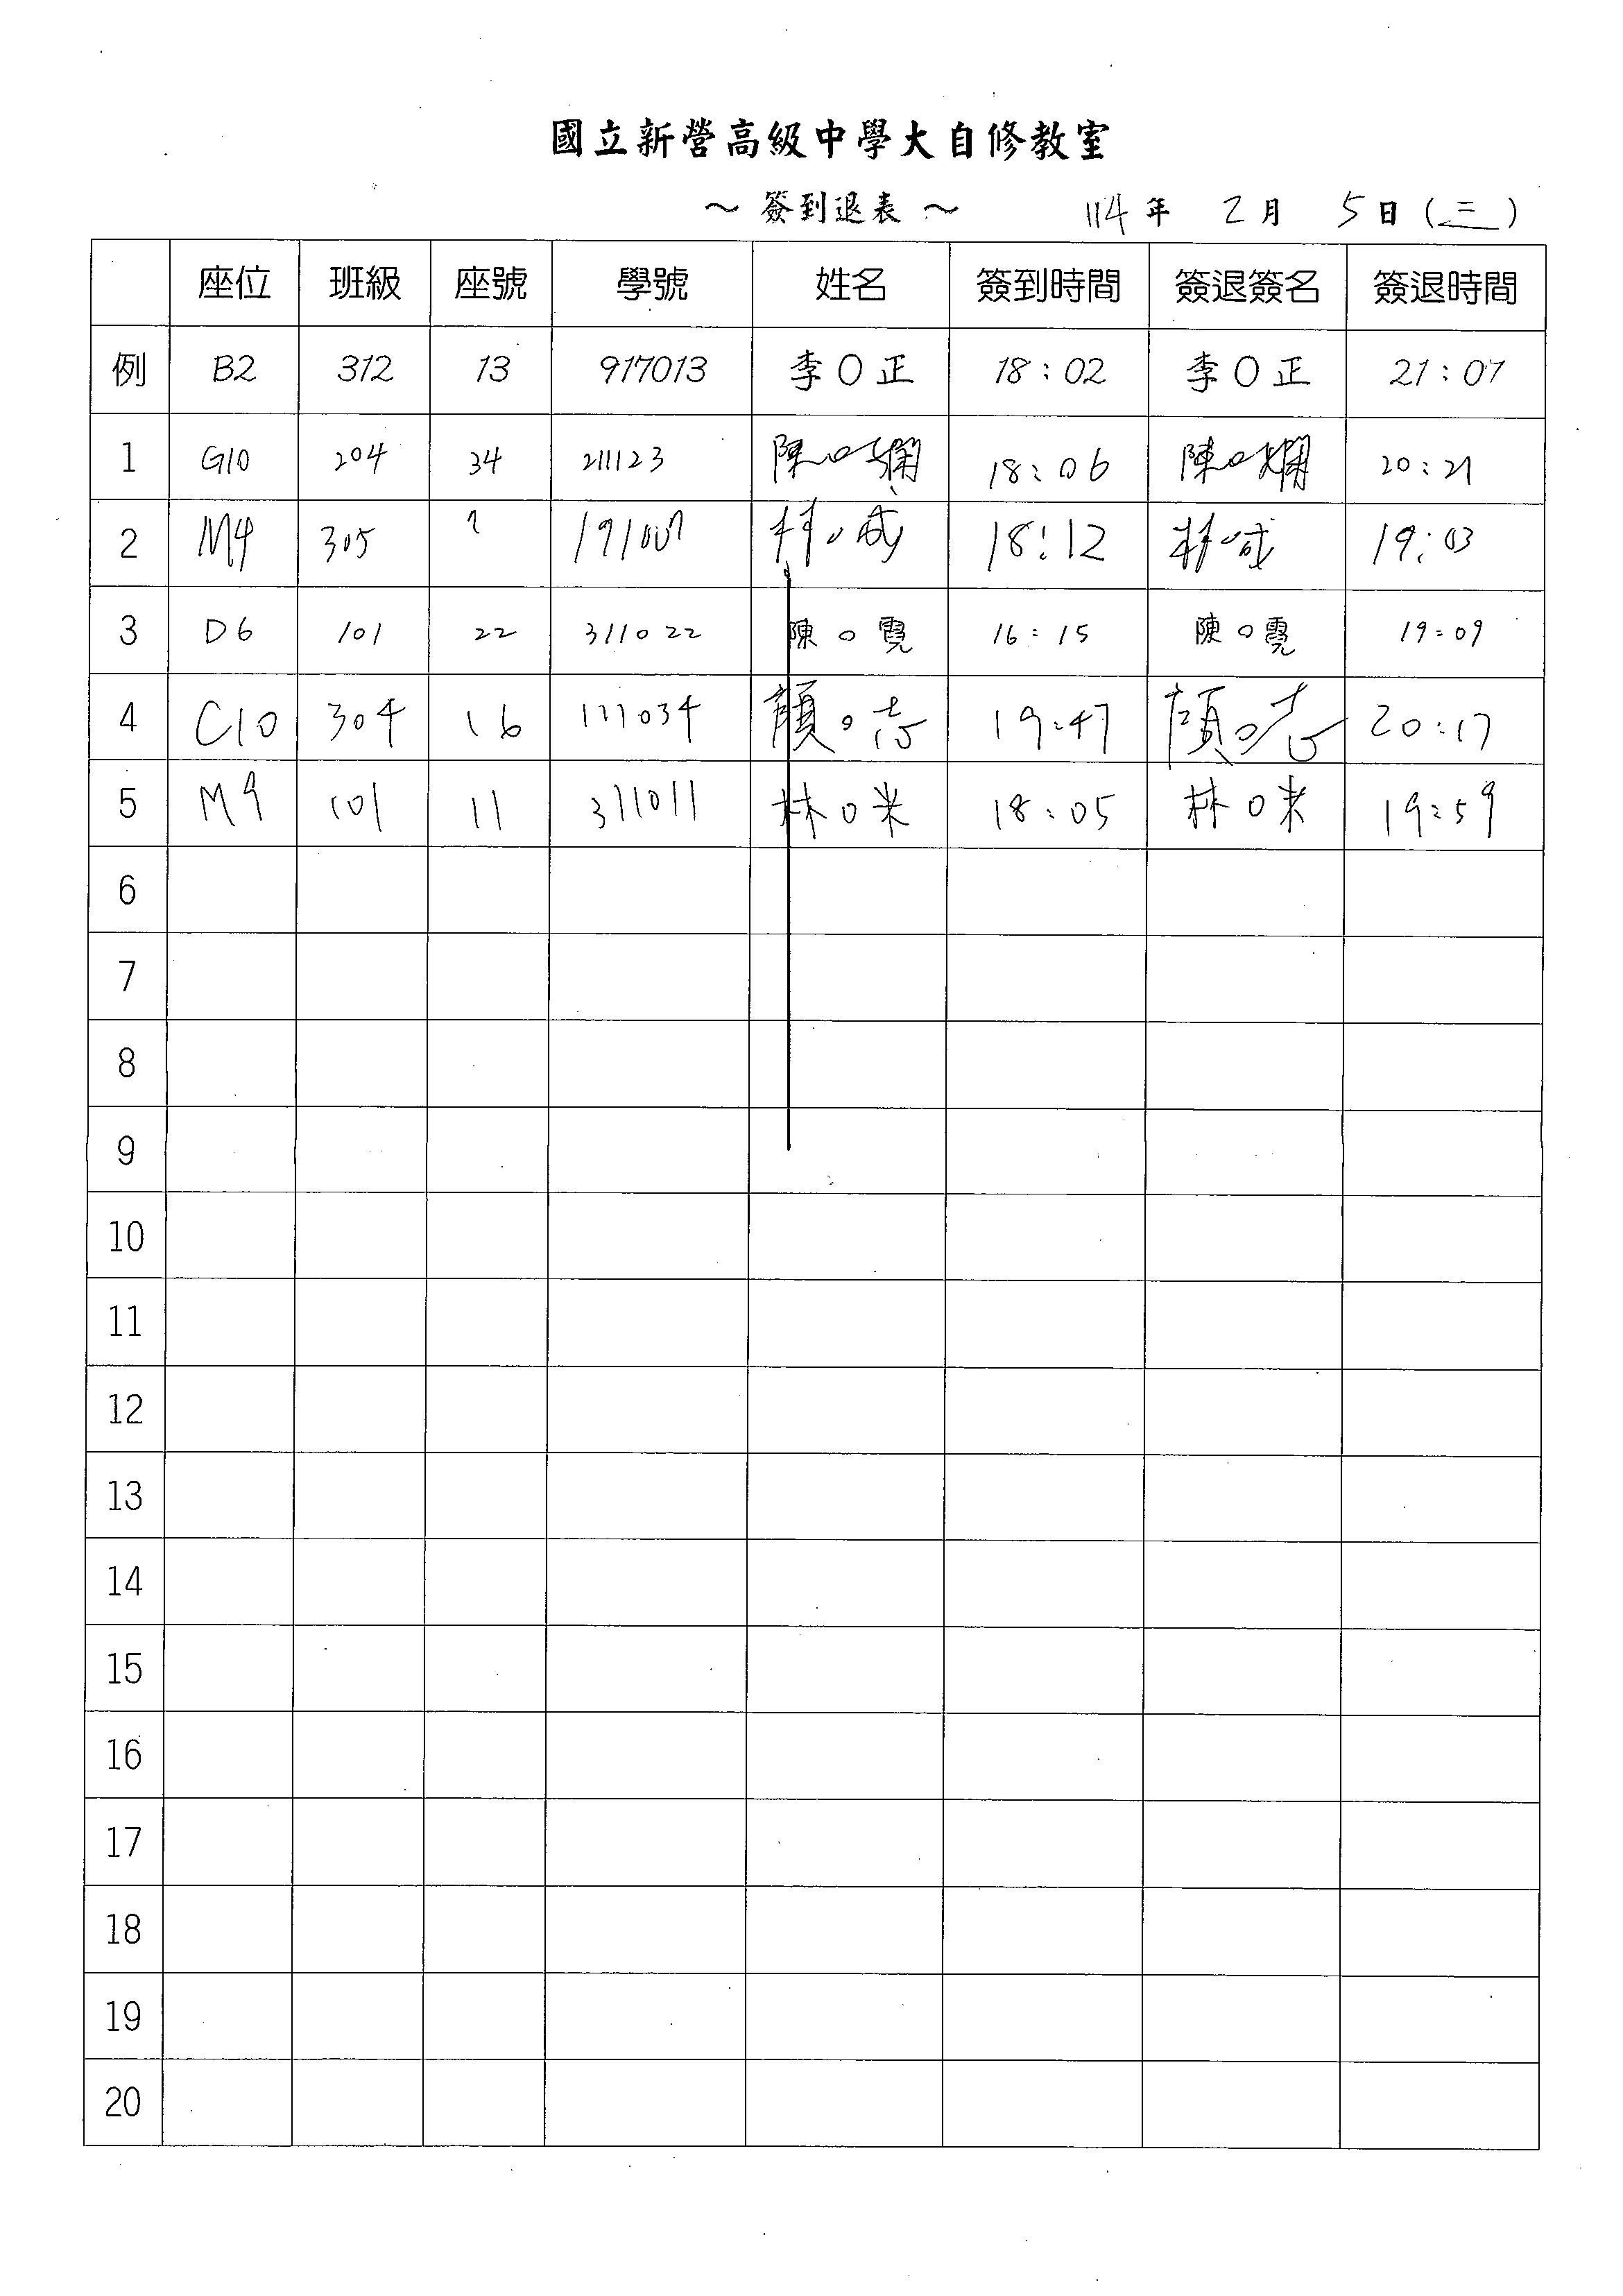 國立新營高級中學大自修教室
～ 簽到退表 ～ 114 年 2 月 5 日 (三)
座位 班級 座號 學號 姓名 簽到時間 簽退簽名 簽退時間
例 B2 312 13 917013 李O正 18:02 李O正 21:07
1 G10 204 34 211123 陳O嫻 18:06 陳O嫻 20:21
2 M4 305 18:12 19:03
3 D6 101 22 311022 陳O霓 16:15 陳O霓 19:09
4 C10 304 16 111034 顏O 19:47 顏O 20:17
5 M9 101 11 311011 林O米 18:05 林O米 19:59
6
7
8
9
10
11
12
13
14
15
16
17
18
19
20